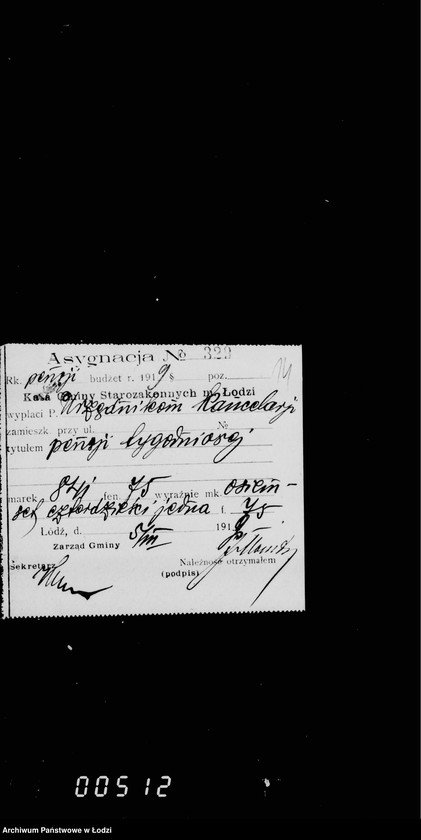 Asygnacja № 329
14
Rk. pensji budżet r. 1919 § poz.
Kasa Gminy Starozakonnych m. Łodzi
wypłaci P. Urzędnikom Kancelarji
zamieszk. przy ul. №
tytułem pensji tygodniowej
marek 841 fen. 75 wyraźnie mk. osiem-
set czterdzieści jedna f. 75
Łódź, d. 5/III 1919
Zarząd Gminy
Sekretarz
Należność otrzymałem
(podpis)
00512
Archiwum Państwowe w Łodzi